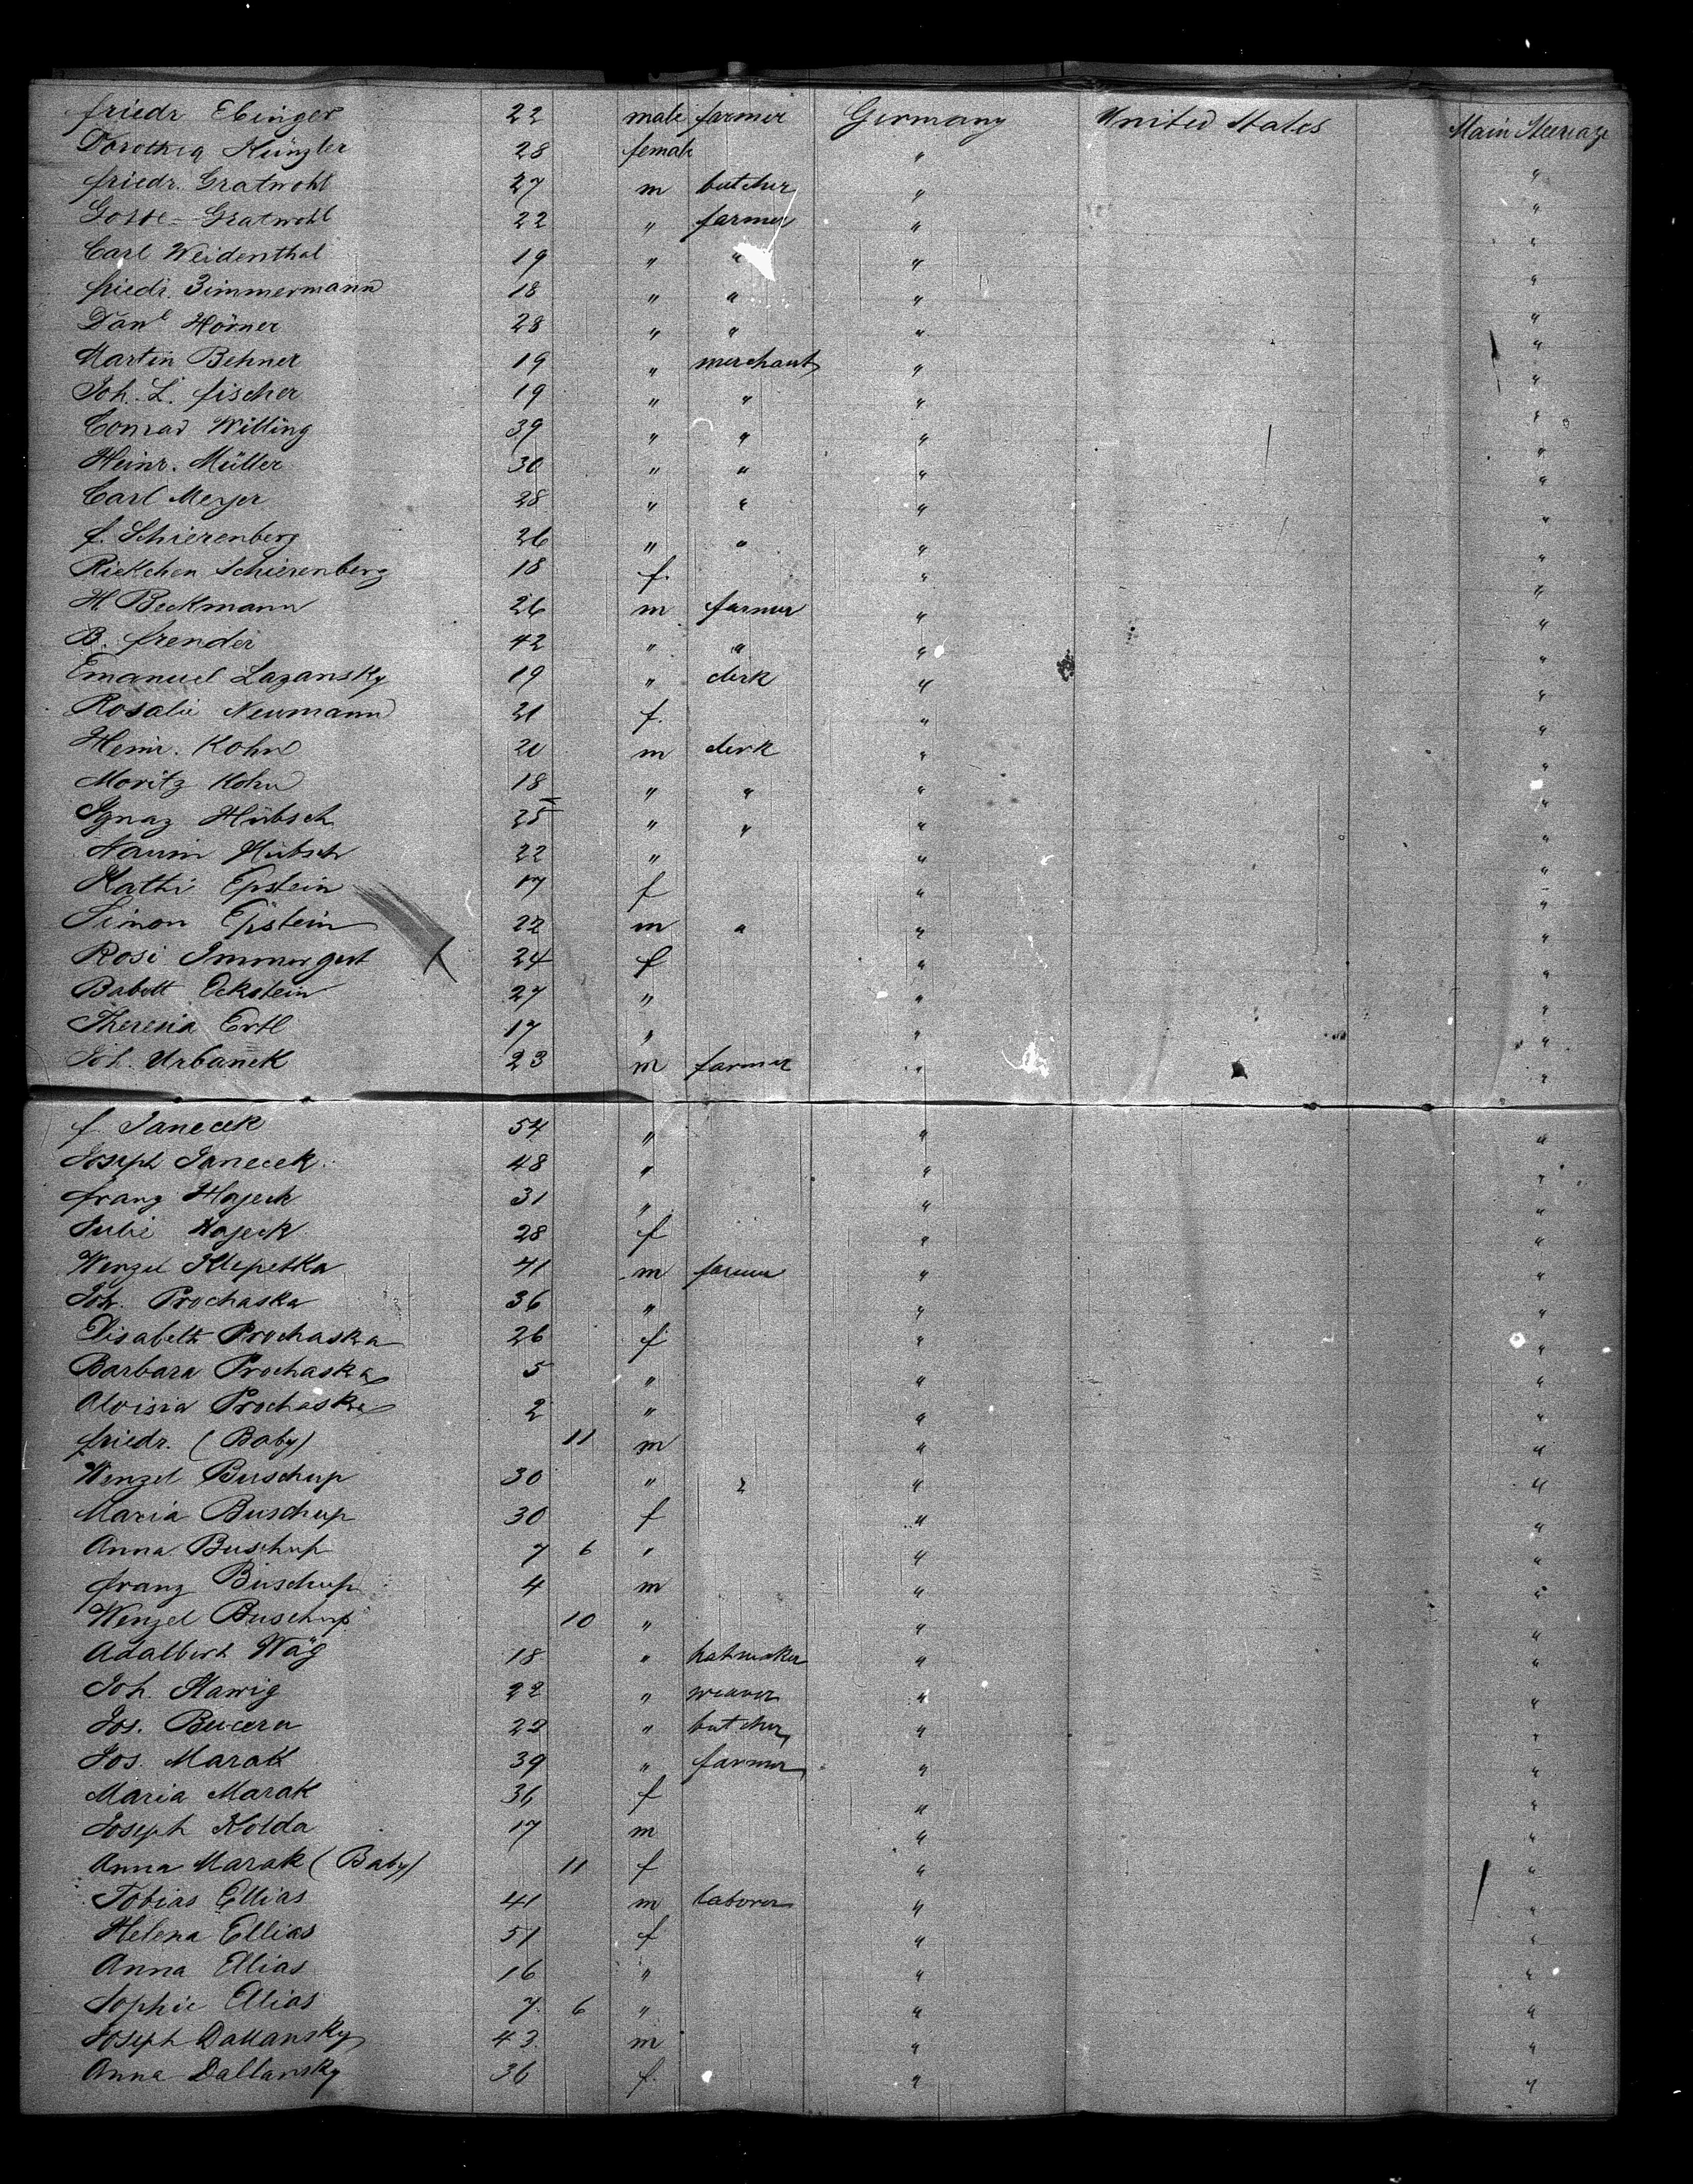 friedr Ebinger 22 male farmer Germany United States Main Steerage
Dorothea Künzler 28 female " "
friedr. Gratwohl 27 m butcher " "
Gratwohl 22 " farmer " "
Carl Weidenthal 19 " " " "
friedr. Zimmermann 18 " " " "
Danl Hörner 28 " " " "
Martin Behner 19 " merchant " "
Joh. L. fischer 19 " " " "
Conrad Willing 39 " " " "
Heinr. Müller 30 " " " "
Carl Meyer 28 " " " "
f. Schierenberg 26 " " " "
Riekchen Schierenberg 18 f. " "
H. Beckmann 26 m farmer " "
B. frender 42 " " " "
Emanuel Lazansky 19 " clerk " "
Rosalie Neumann 21 f. " "
Heinr. Kohn 20 m clerk " "
Moritz Kohn 18 " " " "
Ignaz Hübsch 25 " " " "
Hübsch 22 " " "
Kathi Epstein 17 f " "
Simon Epstein 22 m " " "
Rosi Immergut 24 f " "
Babett Eckstein 27 " " "
Theresia Ertl 17 " " "
Joh. Urbanek 23 m farmer " "
f. Janecek 54 " " "
Joseph Janecek 48 " " "
franz Hajeck 31 " " "
Julie Hajeck 28 f " "
Wenzel Klepetka 41 m farmer " "
Joh. Prochaska 36 " " "
Elisabeth Prochaska 26 f " "
Barbara Prochaska 5 " " "
Aloisia Prochaska 2 " " "
friedr. (Baby) 11 m " "
Wenzel Buschup 30 " " " "
Maria Buschup 30 f " "
Anna Buschup 7 6 " " "
franz Buschup 4 m " "
Wenzel Buschup 10 " " "
Adalbert Wäg 18 " hatmaker " "
Joh. Slawig 22 " weaver " "
Jos. Bucera 22 " butcher " "
Jos. Marak 39 " farmer " "
Maria Marak 36 f " "
Joseph Kolda 17 m " "
Anna Marak (Baby) 11 f " "
Tobias Ellias 41 m laborer " "
Helena Ellias 51 f " "
Anna Ellias 16 " " "
Sophie Ellias 7 6 " " "
Joseph Dallansky 43 m " "
Anna Dallansky 36 f. " "